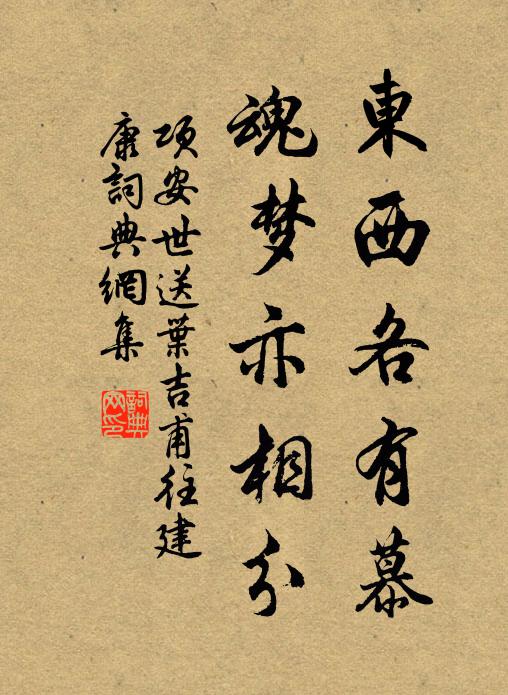 東西各有慕
魂梦亦相分
项安世送葉吉甫往建
康詞典網集
詞典
网印